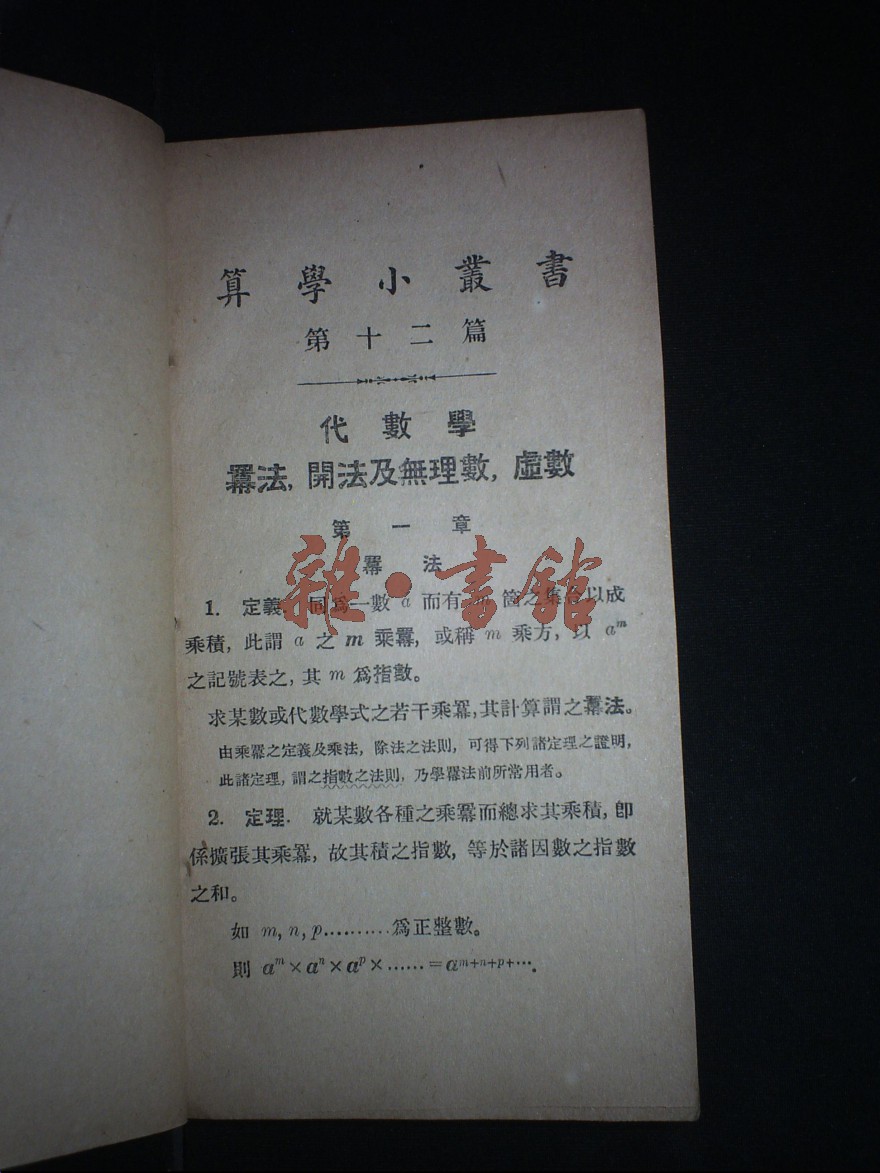 算學小叢書
第十二篇
代數學
羃法, 開法及無理數, 虛數
第一章
羃法
雜·書館
1. 定義. 同爲一數 a 而有 箇之集合以成
乘積, 此謂 a 之 m 乘羃, 或稱 m 乘方, 以 aᵐ
之記號表之, 其 m 爲指數。
求某數或代數學式之若干乘羃, 其計算謂之羃法。
由乘羃之定義及乘法, 除法之法則, 可得下列諸定理之證明,
此諸定理, 謂之指數之法則, 乃學羃法前所常用者。
2. 定理. 就某數各種之乘羃而總求其乘積, 卽
係擴張其乘羃, 故其積之指數, 等於諸因數之指數
之和。
如 m, n, p.......... 爲正整數。
則 aᵐ × aⁿ × aᵖ × ...... = aᵐ⁺ⁿ⁺ᵖ⁺···.